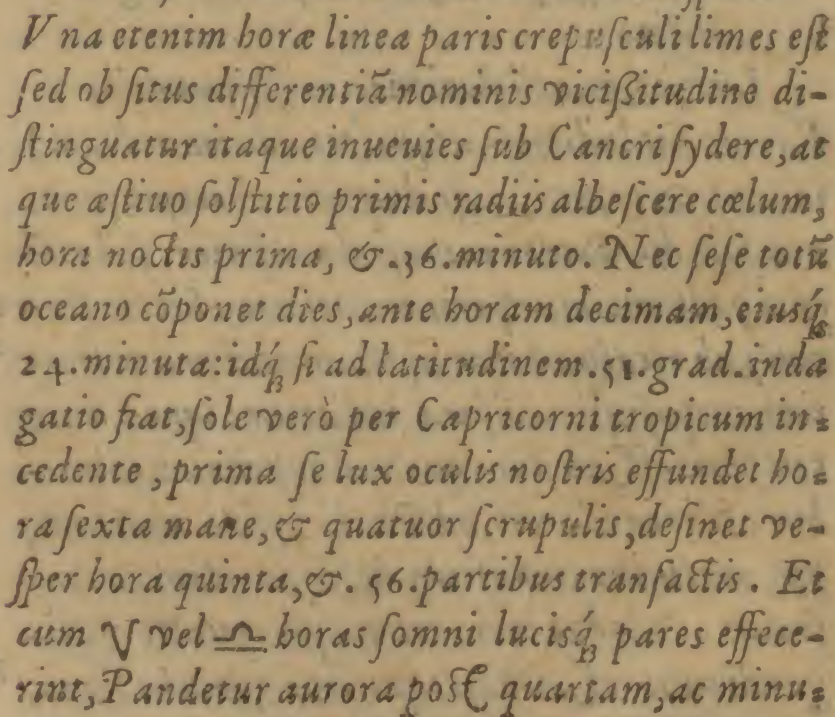 V na etenim horæ linea paris crepuſculi limes eſt
ſed ob ſitus differentiã nominis viciſsitudine di-
ſtinguatur itaque inueuies ſub Cancri ſydere, at
que æſtiuo ſolſtitio primis radiis albeſcere cœlum,
hora noctis prima, &.36.minuto. Nec ſeſe totũ
oceano cõponet dies, ante horam decimam, eiusq́ꝫ
24.minuta: idq́ꝫ ſi ad latitudinem.51.grad.inda
gatio fiat, ſole verò per Capricorni tropicum in=
cedente, prima ſe lux oculis noſtris effundet ho=
ra ſexta mane, & quatuor ſcrupulis, deſinet ve-
ſper hora quinta, &. 56.partibus tranſactis. Et
cum ♈ vel ♎ horas ſomni lucisq́ꝫ pares effece-
rint, Pandetur aurora poſt quartam, ac minu=